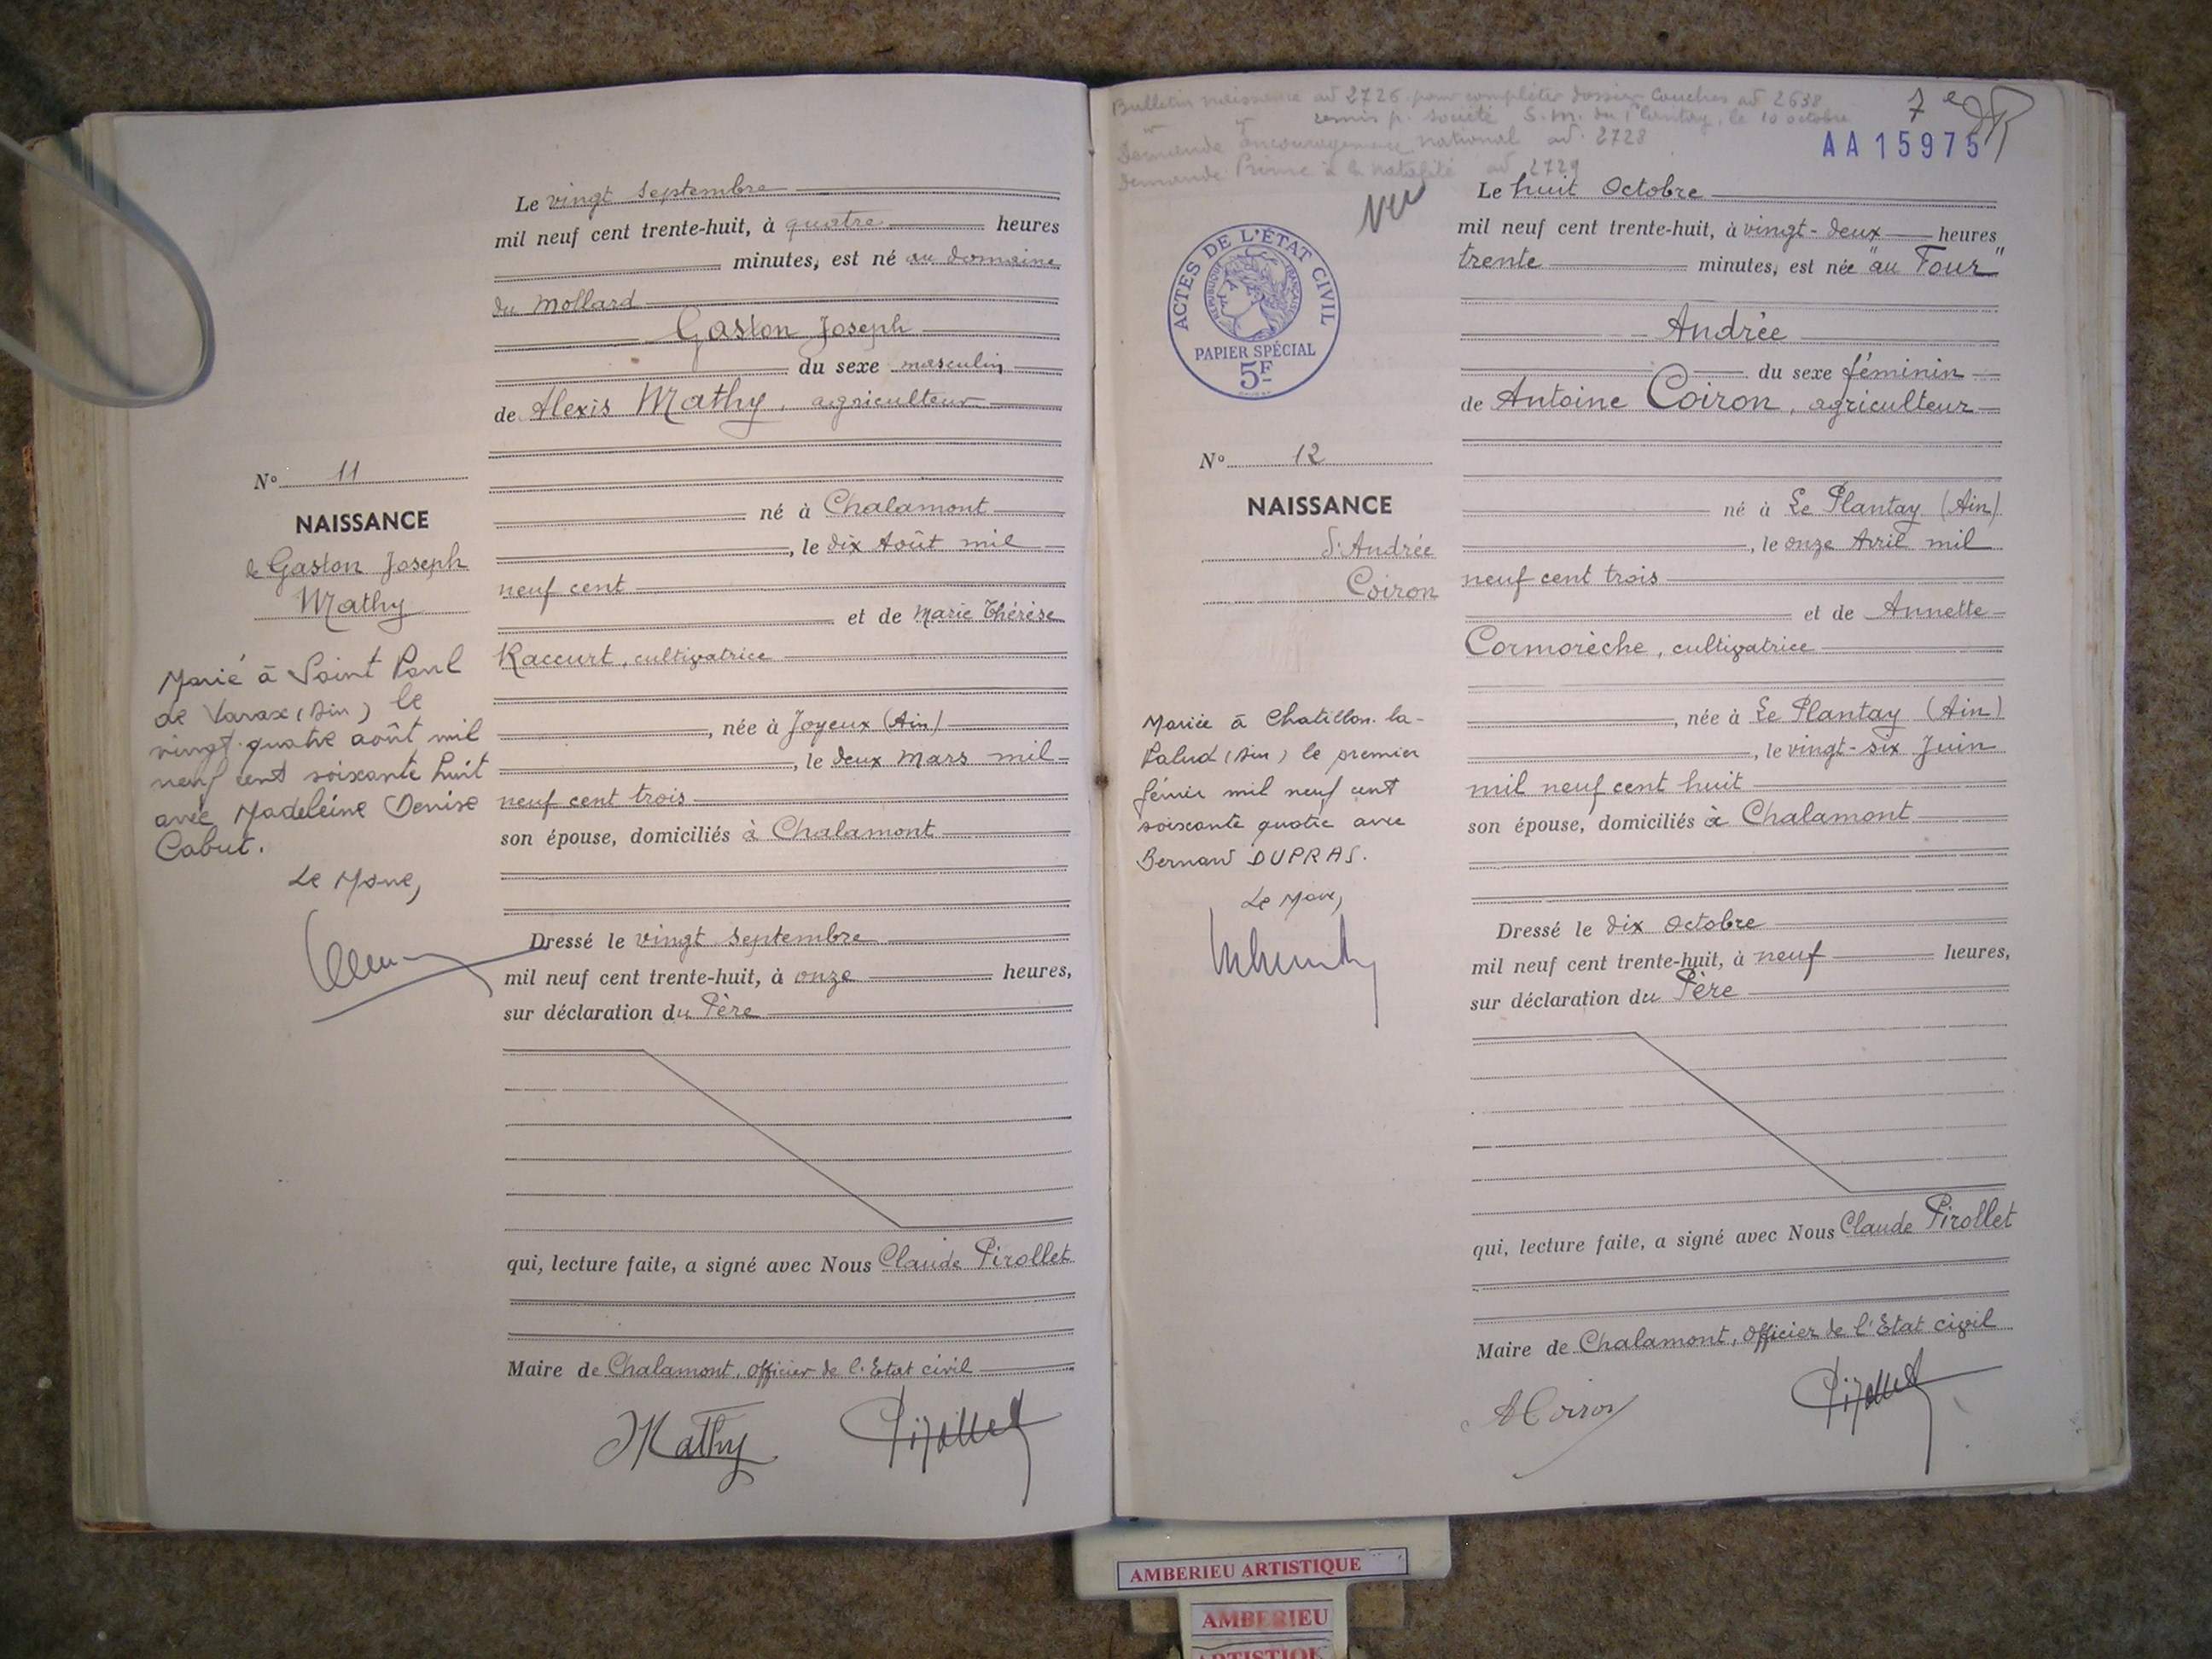 Le vingt Septembre
mil neuf cent trente-huit, à quatre heures
minutes, est né au domaine
du Mollard
Gaston Joseph
du sexe masculin
de Alexis Mathy, agriculteur
né à Chalamont
, le dix Août mil
neuf cent
et de Marie Thérèse
Raccurt, cultivatrice
, née à Joyeux (Ain)
, le deux Mars mil
neuf cent trois
son épouse, domiciliés à Chalamont
Dressé le vingt Septembre
mil neuf cent trente-huit, à onze heures,
sur déclaration du Père
qui, lecture faite, a signé avec Nous Claude Pirollet
Maire de Chalamont, Officier de l'Etat civil
Mathy Pirollet
N° 11
NAISSANCE
de Gaston Joseph
Mathy
Marié à Saint Paul
de Varax (Ain) le
vingt quatre août mil
neuf cent soixante huit
avec Madeleine Denise
Cabut.
Le Maire,
Bulletin naissance ad 2726 pour compléter dossier couches ad 2638
remis p. société S.M. du Plantay, le 10 octobre
Demande encouragement national ad. 2728
Demande Prime à la natalité ad 2729
Vu
7e
AA15975
ACTES DE L'ÉTAT CIVIL
RÉPUBLIQUE FRANÇAISE
PAPIER SPÉCIAL
5F
N° 12
NAISSANCE
d'Andrée
Coiron
Mariée à Chatillon-la-
Palud (Ain) le premier
février mil neuf cent
soixante quatre avec
Bernard DUPRAS.
Le Maire,
Le huit Octobre
mil neuf cent trente-huit, à vingt-deux heures
trente minutes, est née "au Four"
Andrée
du sexe féminin
de Antoine Coiron, agriculteur
né à Le Plantay (Ain)
, le onze Avril mil
neuf cent trois
et de Annette
Cormorèche, cultivatrice
, née à Le Plantay (Ain)
, le vingt-six Juin
mil neuf cent huit
son épouse, domiciliés à Chalamont
Dressé le dix Octobre
mil neuf cent trente-huit, à neuf heures,
sur déclaration du Père
qui, lecture faite, a signé avec Nous Claude Pirollet
Maire de Chalamont, Officier de l'Etat civil
A Coiron Pirollet
AMBERIEU ARTISTIQUE
AMBERIEU
ARTISTIQUE